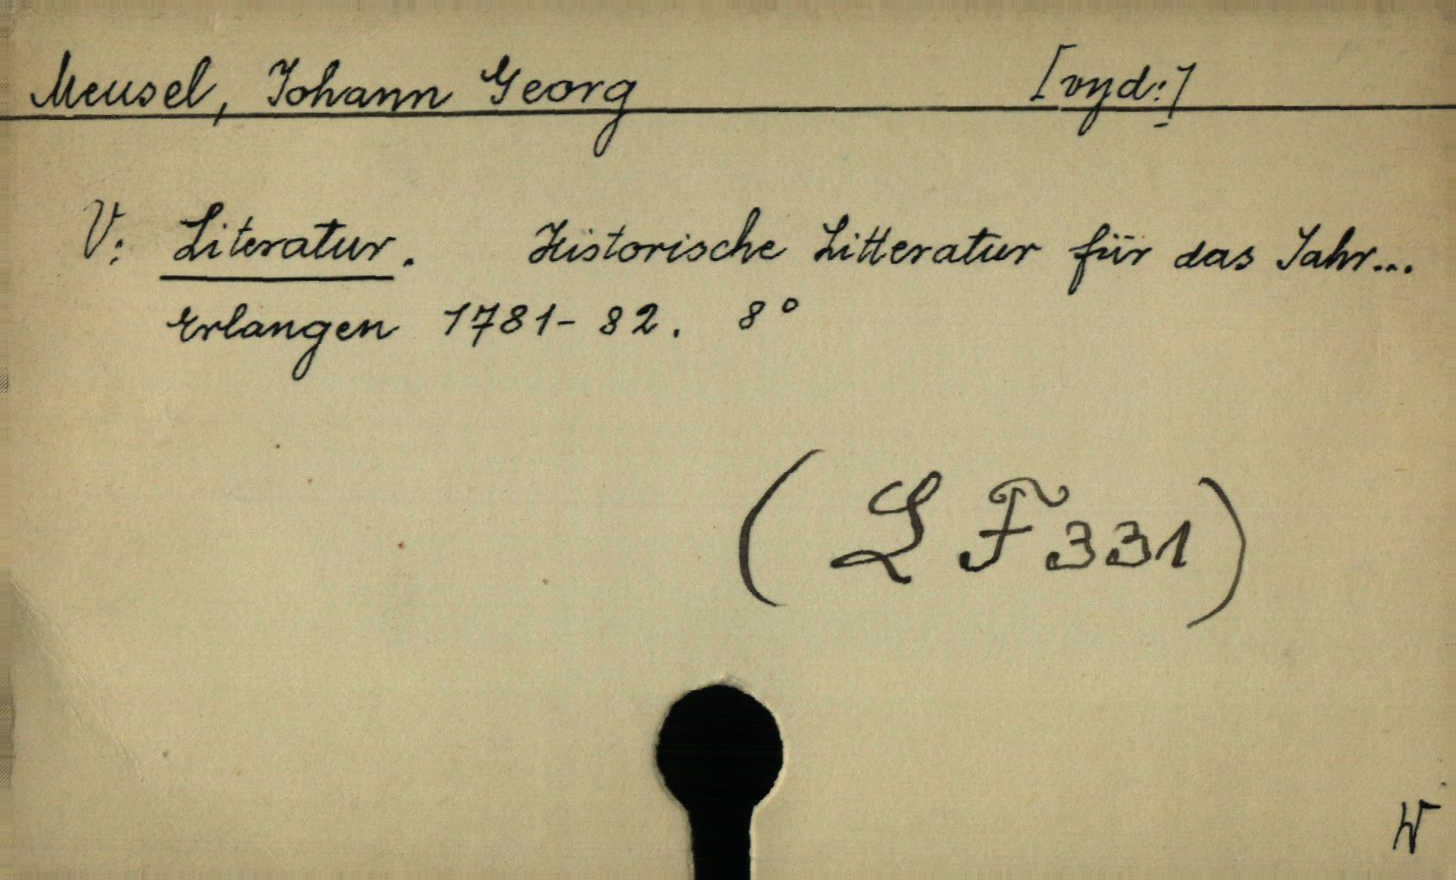 Meusel, Johann Georg [vyd:]
V: Literatur. Historische Litteratur für das Jahr...
Erlangen 1781-82. 8°
(LF331)
W